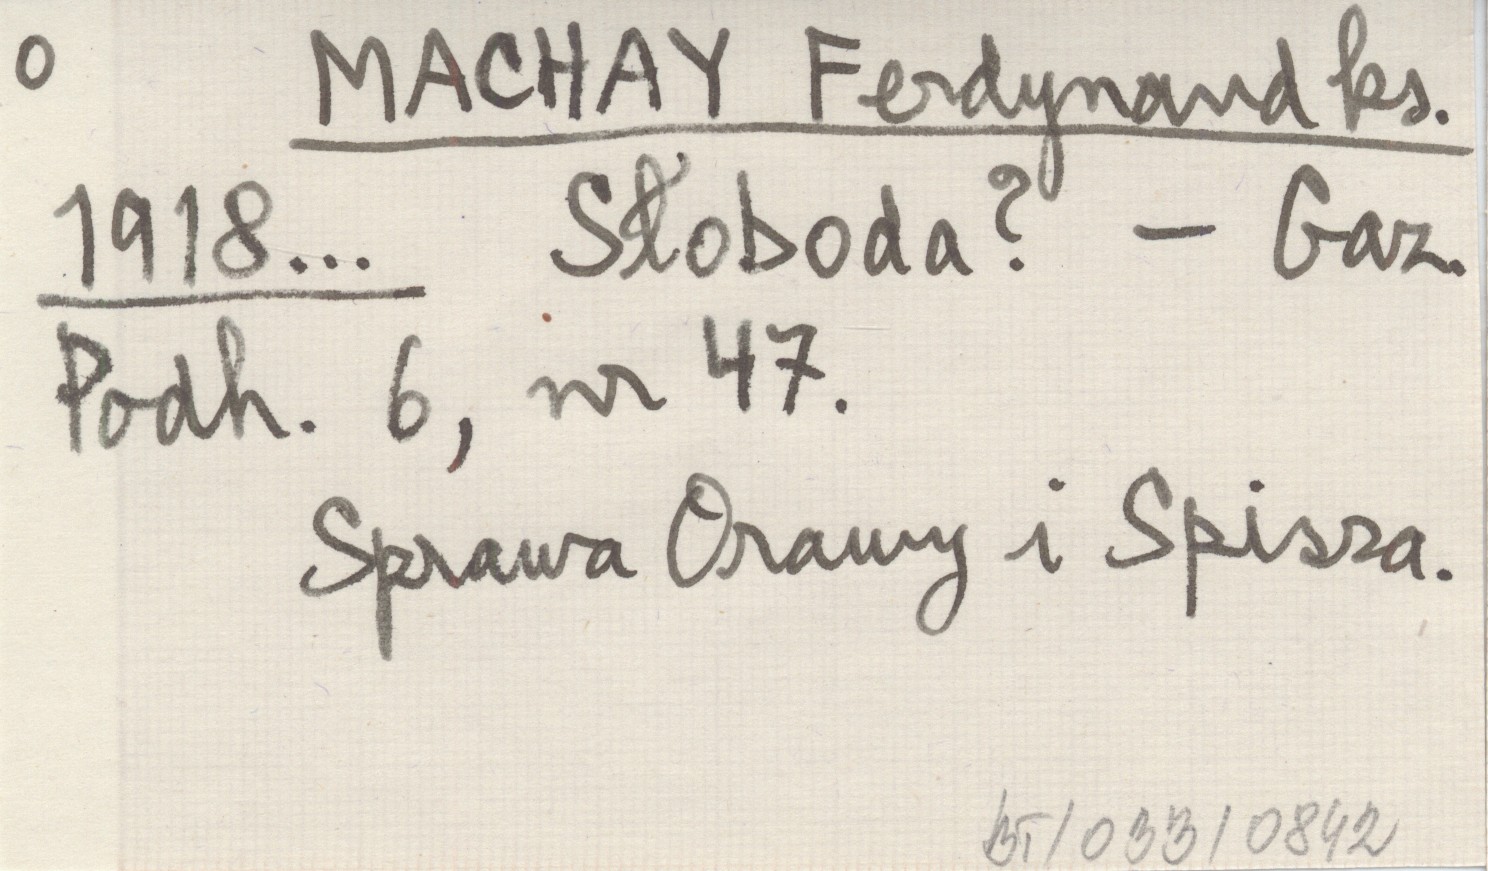 o MACHAY Ferdynand ks.
1918... Słoboda? - Gaz.
Podh. 6, nr 47.
Sprawa Orawy i Spisza.
BT/033/0842